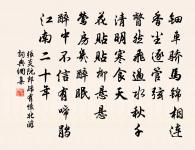 鈿車驕馬錦相連
香塵逐管弦
瞥然飛過水秋千
清明寒食天
花貼貼柳懸懸
鶯房幾醉眠
醉中不信有啼鵑
江南二十年
張炎阮郎歸有懷北遊
詞典網集